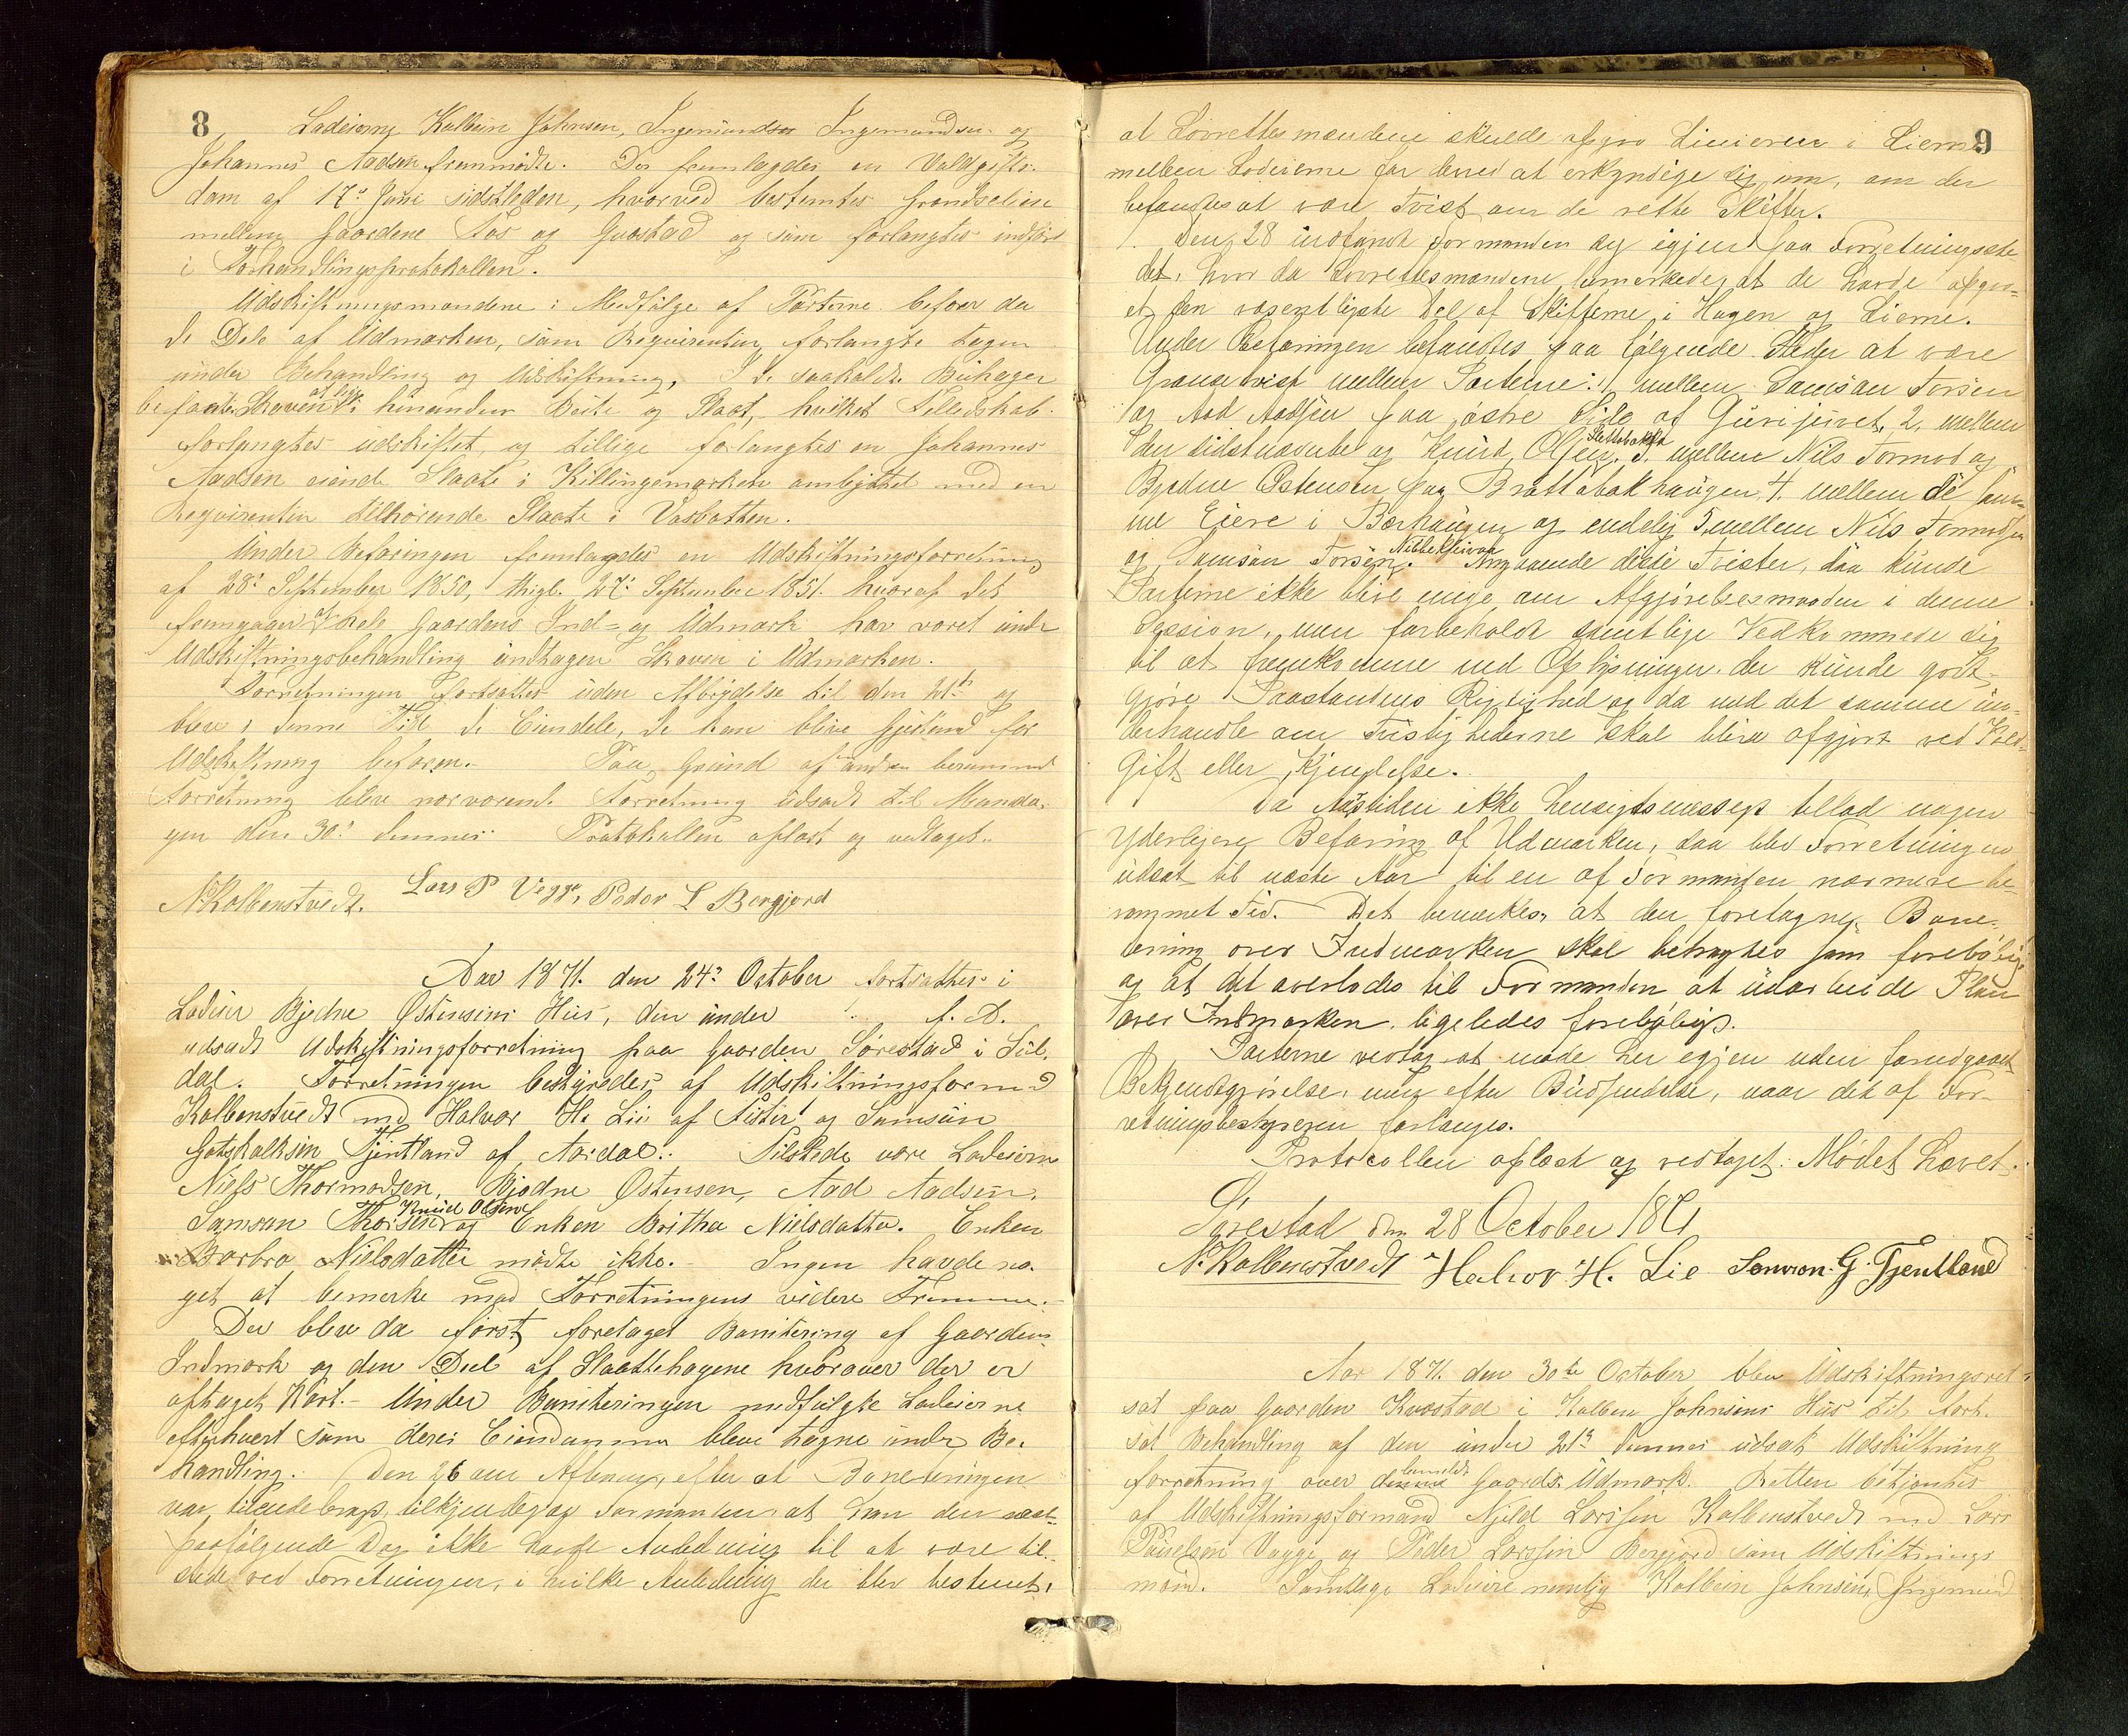 8
Lodeierne Kolbein Johnsen, Ingemundsen Ingemundsen og
Johannes Aadsen fremmødte. Der fremlagdes en Voldgifts-
dom af 17de Juni sidstleden, hvorved bestemtes Grændselinie
mellem Gaardene Fos og Gvastad og som forlangtes indført
i Forhandlingsprotokollen.
Udskiftningsmændene i Medfølge af Parterne befoer da
de Dele af Udmarken, som Requirenten forlangte tagen
under Behandling og Udskiftning. I de saakaldte Bühager
befandtes Skoven at ligge i hinanden Beite og Slaat, hvilket Fælledskab
forlangtes udskiftet, og tillige forlangtes en Johannes
Aadsen eiende Slaate i Killingemarken ombyttet med en
Requirenten tilhørende Slaate i Vasbotten.
Under Befaringen fremlagdes en Udskiftningsforretning
af 28de September 1850, thigl. 27de September 1851. hvoraf det
fremgaaer at hele Gaardens Ind- og Udmark har været under
Udskiftningsbehandling undtagen Skoven i Udmarken.
Forretningen fortsattes uden Afbrydelse til den 21de og
bleve i denne Tid de Eiendele, de kan blive Gjenstand for
Udskiftning befaren. Paa Grund af anden berammet
Forretning blev nærværende Forretning udsadt til Manda-
gen den 30de dennes. Protokollen oplæst og vedtaget.
N. Kolbenstvedt. Lars P Vegge, Peder L Bergjord
Aar 1871. den 24de October fortsattes i
Lodeier Bjedne Østensens Hus, den under f. A.
udsadt Udskiftningsforretning paa Gaarden Sørestad i Sul-
dal. Forretningen bestyredes af Udskiftningsformand
Kolbenstvedt med Halvor H. Lie af Fister og Samson
Gotskalksen Tjentland af Aardal. Tilstede vare Lodeierne
Niels Thormodsen, Bjodne Østensen, Aad Aadsen,
Samson Thorsen Knud Olsen og Enken Britha Nielsdatter. Enken
Barbra Nielsdatter mødte ikke. Ingen havde no-
get at bemerke mod Forretningens videre Fremme.
Der blev da først foretaget Bonitering af Gaardens
Indmark og den Deel af Slaattehagene hvorover der er
optaget Kart. Under Boniteringen medfulgte Lodeierne
efterhvert som deres Eiendomme bleve tagne under Be-
handling. Den 26 om Aftenen, efter at Boneteringen
var tilendebragt, tilkjendegav Formanden at han den næst-
paafølgende Dag ikke havde Anledning til at være til-
stede ved Forretningen, i hvilke Anledning der blev bestemt,
9
at Lavrettesmændene skulde opgaa Linierne i Lierne
mellem Lodeierne for derved at erkyndige sig om, om der
befandtes at være Tvist om de rette Skifter.
Den 28 indfandt Formanden sig igjen paa Forretningsste-
det, hvor da Lavrettesmændene bemærkede, at de havde opgaa-
et den væsentligste Del af Skifterne i Hagen og Lierne.
Under Befaringen befandtes paa følgende Steder at være
Grænsetvist mellem Parterne: 1, mellem Samson Torsen
og Aad Aadsen paa østre Side af Gurijuvet, 2, mellem
den sidstnævnte og Knud Olsen, 3. mellem Nils Tormod og
Bjedne Østensen paa Brattabakhaugen 4. mellem de sam-
me Eiere i Bærhaugen og endelig 5 mellem Nils Tormodsen
og Samson Torsen. Angaaende disse Tvister, saa kunde
Parterne ikke blive enige om Afgjørelsesmaaden i denne
Session, men forbeholdt samtlige Vedkommende sig
til at fremkomme med Oplysninger der kunde godt-
gjøre Paastandens Rigtighed og da med det samme un-
derhandle om Tvistighederne skal blive afgjort ved Vold-
Gift eller Kjendelse.
Da Aarstiden ikke hensigtsmæssigt tillod nogen
yderligere Befaring af Udmarken, saa blev Forretningen
udsat til næste Aar til en af Formanden nærmere be-
rammet Tid. Det bemærkes, at den foretagne Bone-
tering over Indmarken skal betragtes som foreløbig
og at det overlodes til Formanden at udarbeide Plan
over Indmarken, ligeledes foreløbigt.
Parterne vedtog at møde her egjen uden forudgaaet
Bekjendtgjørelse, men efter Budsendelse, naar det af For-
retningsbestyreren forlanges.
Protocollen oplæst og vedtaget. Mødet hævet.
Sørestad den 28 October 1871
N. Kolbenstvedt Halvor H. Lie Samson G. Tjentland
Aar 1871. den 30te October blev Udskiftningsret
sat paa Gaarden Kvæstad i Kolben Johnsens Hus til fort-
sat Behandling af den under 21de dennes udsat Udskiftning
forretning over bemeldte Gaards Udmark. Retten betjentes
af Udskiftningsformand Njeld Larssen Kolbenstvedt med Lars
Paulsen Vegge og Peder Larssen Bergjord som Udskiftnings
mænd. Samtlige Lodeiere nemlig Kolbein Johnsen, Ingemund